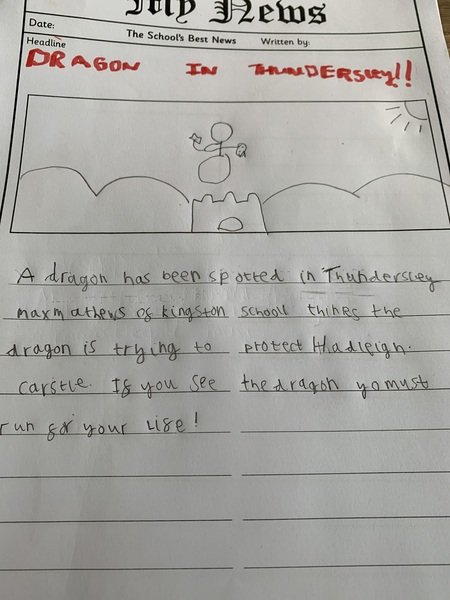 My News
Date:
The School's Best News
Written by:
Headline
DRAGON IN THUNDERSLEY!!
A dragon has been spotted in Thundersley
maxmathews of kingston school thines the
dragon is trying to protect Hadleigh.
carstle. If you see the dragon yo must
run for your life!